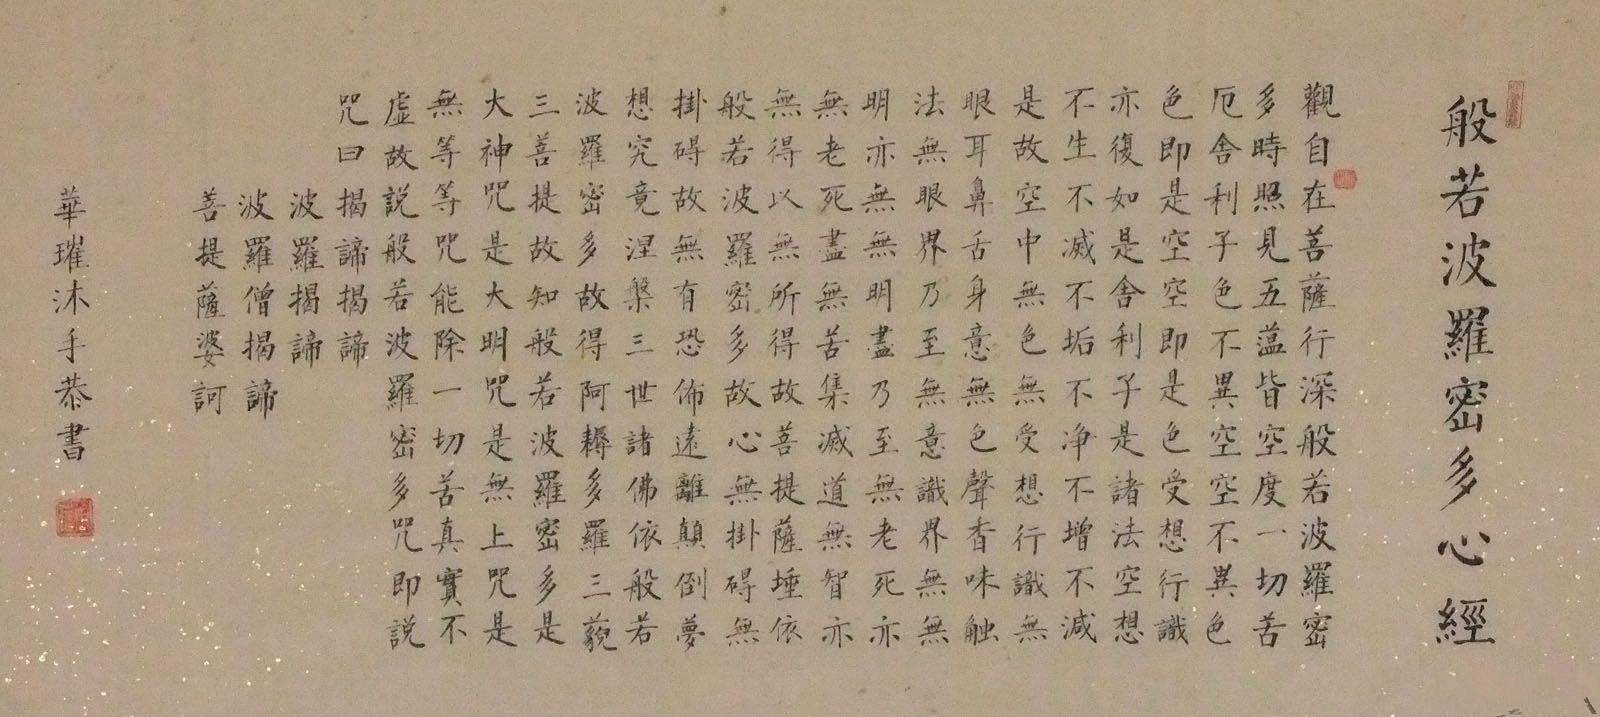 般若波羅密多心經
觀自在菩薩行深般若波羅密
多時照見五蕰皆空度一切苦
厄舍利子色不異空空不異色
色即是空空即是色受想行識
亦復如是舍利子是諸法空想
不生不滅不垢不净不增不減
是故空中無色無受想行識無
眼耳鼻舌身意無色聲香味触
法無眼界乃至無意識界無無
明亦無無明盡乃至無老死亦
無老死盡無苦集滅道無智亦
無得以無所得故菩提薩埵依
般若波羅密多故心無掛碍無
掛碍故無有恐佈遠離顛倒夢
想究竟涅槃三世諸佛依般若
波羅密多故得阿耨多羅三藐
三菩提故知般若波羅密多是
大神咒是大明咒是無上咒是
無等等咒能除一切苦真實不
虛故説般若波羅密多咒即説
咒曰揭諦揭諦
波羅揭諦
波羅僧揭諦
菩提薩婆訶
華璀沐手恭書